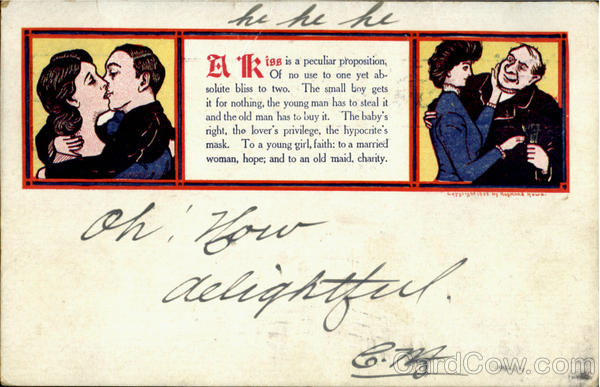 he he he
A Kiss is a peculiar proposition,
Of no use to one yet ab-
solute bliss to two. The small boy gets
it for nothing, the young man has to steal it
and the old man has to buy it. The baby's
right, the lover's privilege, the hypocrite's
mask. To a young girl, faith: to a married
woman, hope; and to an old maid, charity.
Oh! How
delightful.
CardCow.com